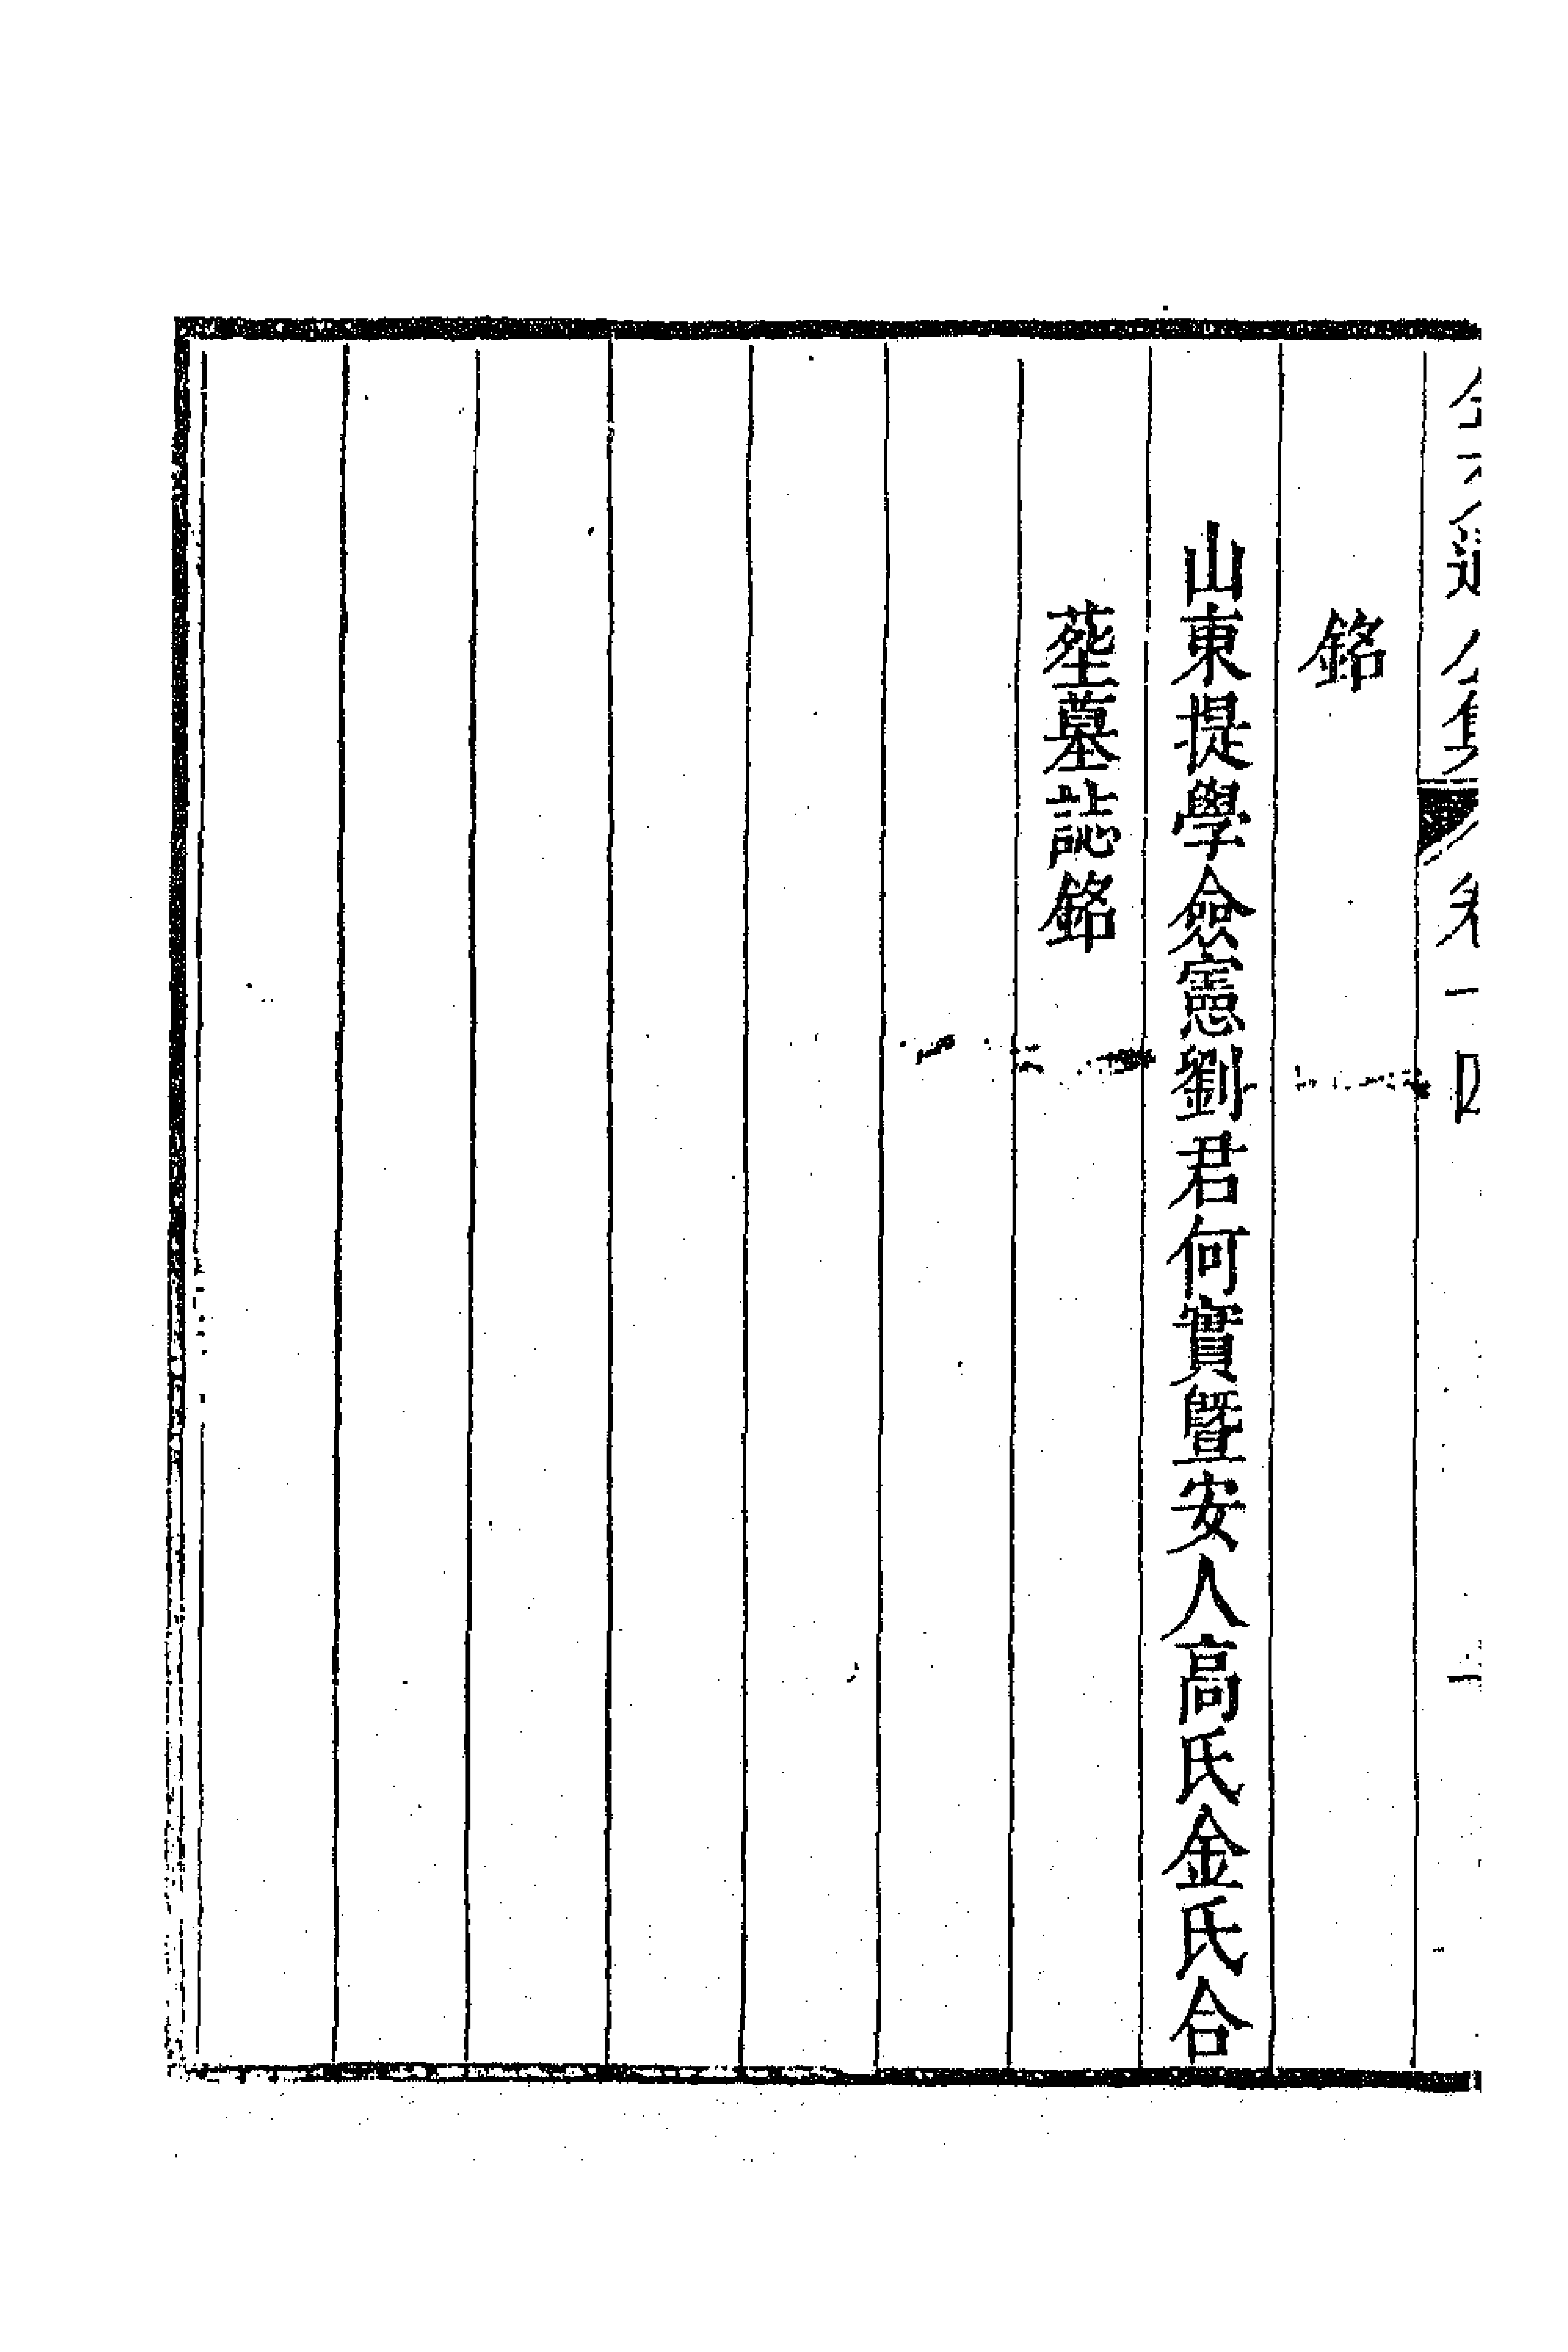 銘
山東提學僉憲劉君何實暨安人高氏金氏合
塟墓誌銘